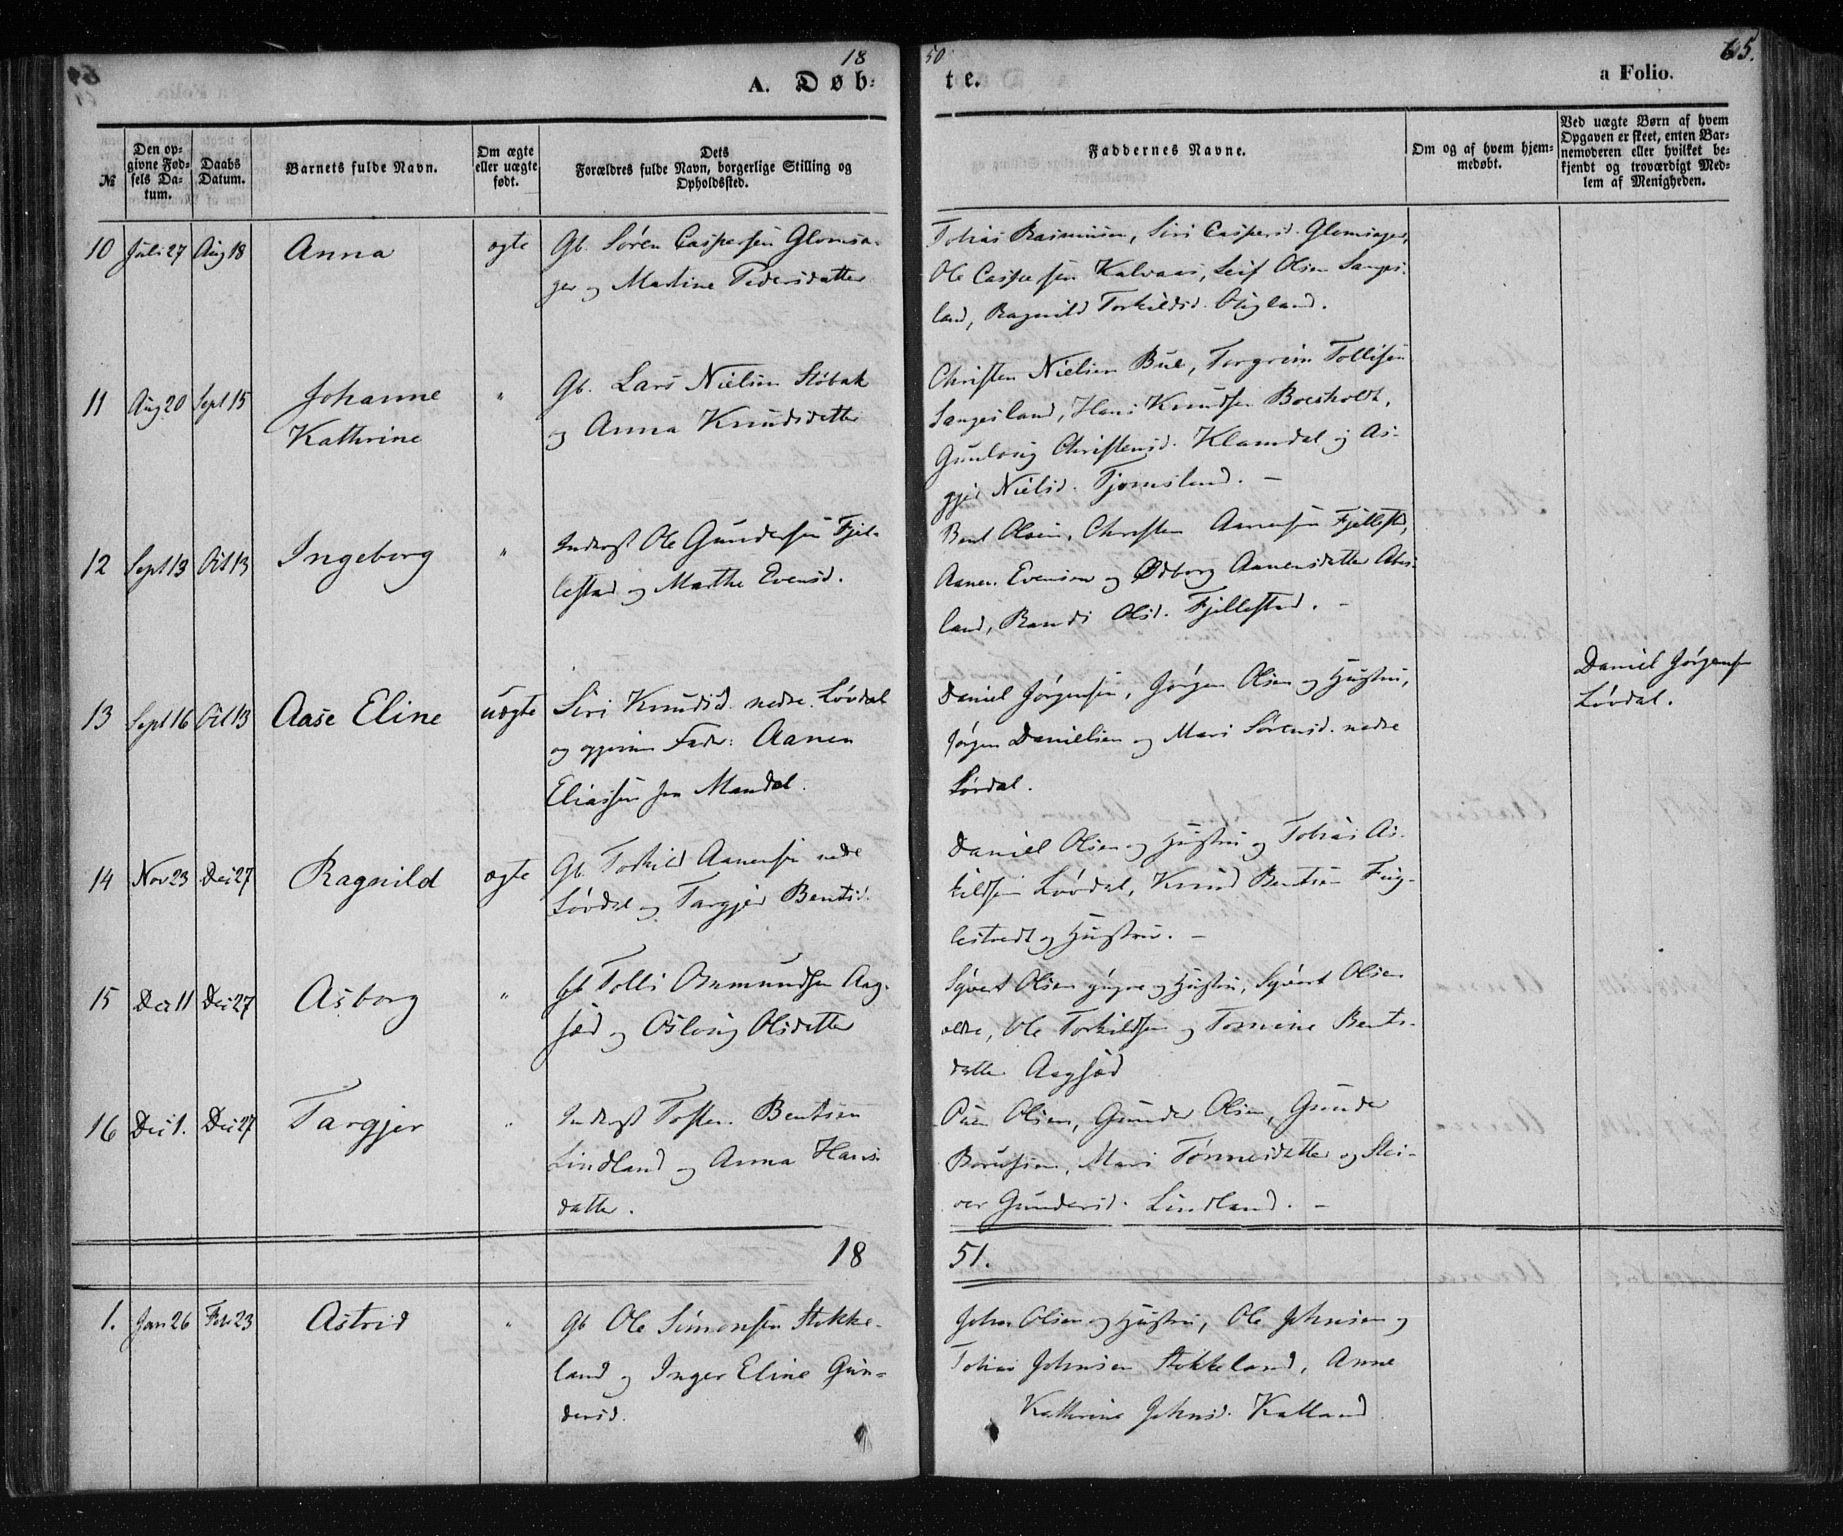 18
50
65.
A. Døb-
te.
a Folio.
№
Den op-
givne Fød-
sels Da-
tum.
Daabs
Datum.
Barnets fulde Navn.
Om ægte
eller uægte
født.
Dets
Forældres fulde Navn, borgerlige Stilling og
Opholdssted.
Faddernes Navne.
Om og af hvem hjem-
medøbt.
Ved uægte Børn af hvem
Opgaven er skeet, enten Bar-
nemoderen eller hvilket be-
kjendt og troværdigt Med-
lem af Menigheden.
10 Juli 27 Aug 18 Anna ægte Gb. Søren Caspersen Glomsa-
ger og Martine Pedersdatter
Tobias Rasmussen, Siri Caspersd. Glomsager,
Ole Caspersen Kalvaas, Leif Olsen Sanges-
land, Ragnild Torkildsd. Øigland.
11 Aug 20 Sept 15 Johanne
Kathrine
" Gb. Lars Nielsen Støbak
og Anna Knudsdatter
Christen Nielsen Bue, Torgrim Tollisen
Sangesland, Hans Knudsen Boesholdt,
Gunlaug Christensd. Klamdal og As-
gjer Nielsd. Tjomsland. -
12 Sept 13 Oct 13 Ingeborg " Inderst Ole Gundersen Fjel-
lestad og Marthe Evensd.
Bent Olsen, Christen Aanensen Fjellestad,
Aanen Evensen og Ødborg Aanensdatter Abes-
land, Randi Olsd. Fjellestad. -
13 Sept 16 Oct 13 Aase Eline uægte Siri Knudsd. nedre Løvdal
og opgiven Fader: Aanen
Eliassen fra Mandal.
Daniel Jørgensen, Jørgen Olsen og Hustru,
Jørgen Danielsen og Mari Sørensd. nedre
Løvdal.
Daniel Jørgensen
Løvdal.
14 Nov 23 Dec 27 Ragnild ægte Gb. Torkild Aanensen nedre
Løvdal og Targjer Bentsd.
Daniel Olsen og Hustru og Tobias As-
kildsen Løvdal, Knud Bentsen Fug-
lestvedt og Hustru. -
15 Dec 11 Dec 27 Asborg " Gb Tolli Osmundsen Aag-
sæd og Oslaug Olsdatter
Syvert Olsen yngre og Hustru, Syvert Olsen
ældre, Ole Torkildsen og Tomine Bents-
datter Aagsæd
16 Dec 1. Dec 27 Targjer " Inderst Tosten Bentsen
Lindland og Anna Hans-
datter.
Olsen, Gunder Olsen, Gunder
Mari Tønnesdatter og Stei-
ver Gundersd. Lindland. -
18
51.
1. Jan 26 Feb 23 Astrid " Gb Ole Simonsen Stokke-
land og Inger Eline Gun-
dersd.
John Olsen og Hustru, Ole Johnsen og
Tobias Johnsen Stokkeland, Anne
Kathrine Johnsd. Kalland.